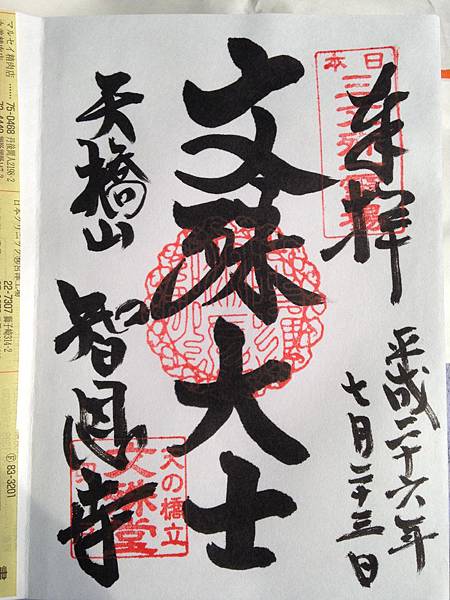 奉拝
日本三文殊
平成二十六年
七月二十三日
文殊大士
天橋山
智恩寺
天の橋立
文殊堂
マルセイ精肉店
75-0488
22-7307 獅子崎314-2
83-3201